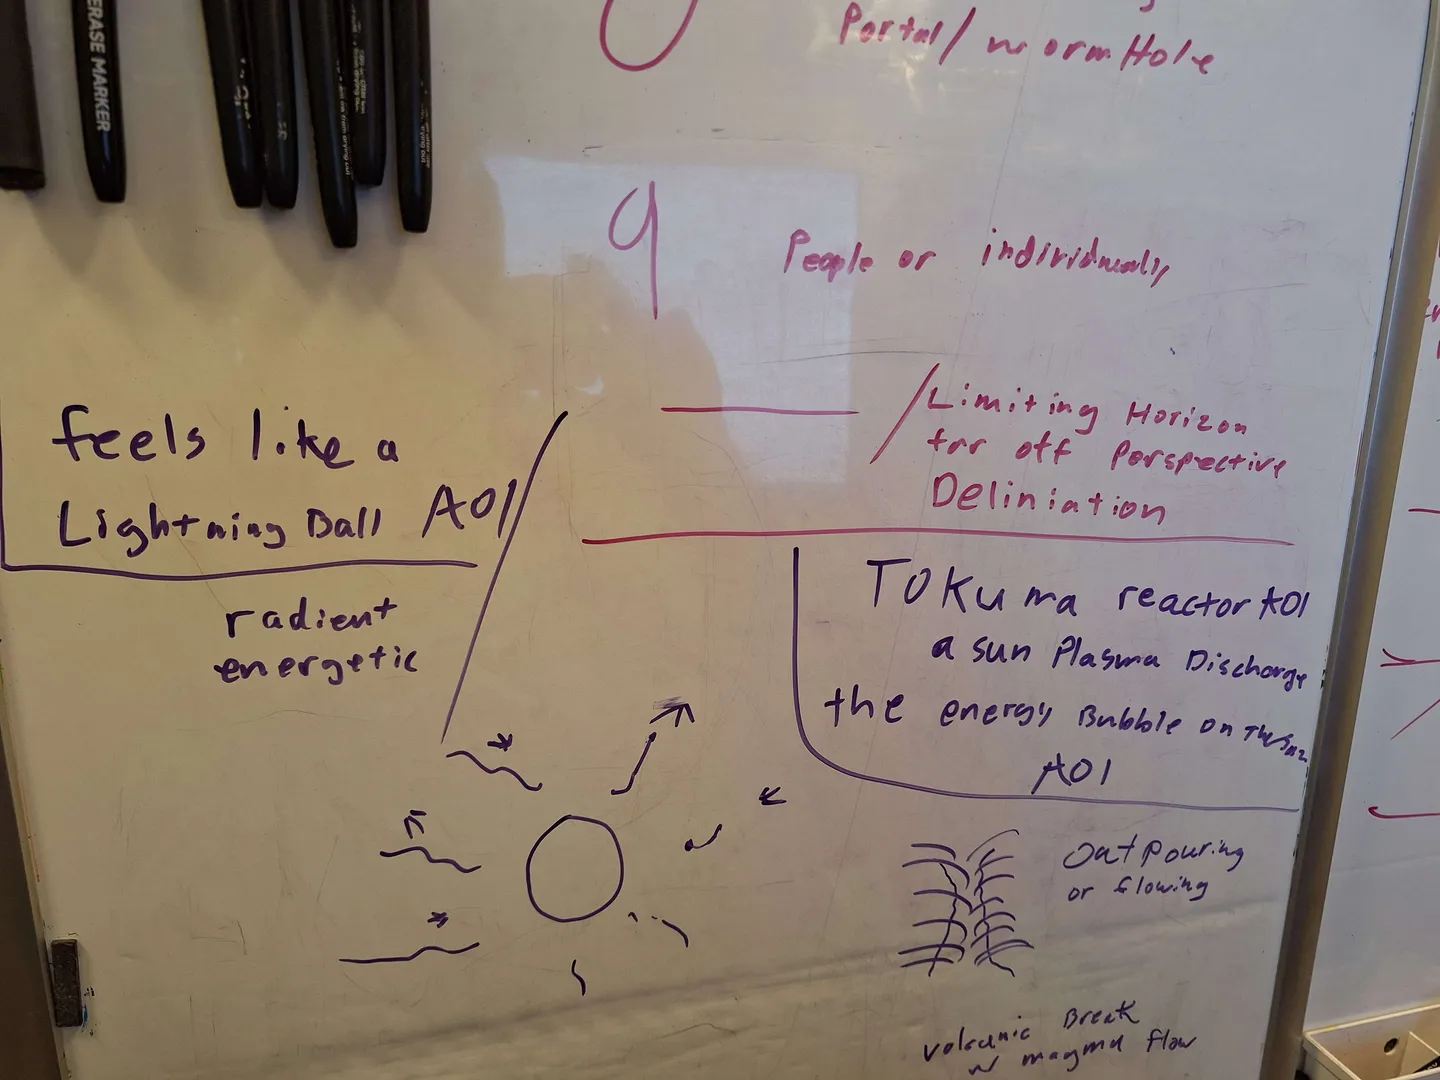 ERASE MARKER
Portal/wormHole
9
People or individually
/Limiting Horizon
far off Perspective
Deliniation
feels like a
Lightning Ball AOI
radient
energetic
TOKuma reactor AOI
a sun Plasma Discharge
the energy Bubble on
AOI
Outpouring
or flowing
volcanic Break
w magma flow